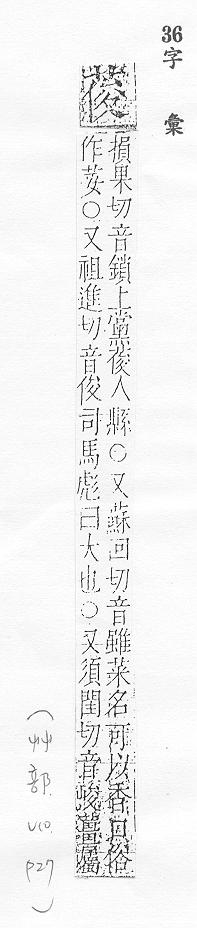 36
字彙
葰
損果切音鎖上黨葰人縣○又蘇回切音雖菜名可以香口俗
作荽○又祖進切音俊司馬彪曰大也○又須閏切音峻薑屬
(艸部, VCO, P27)